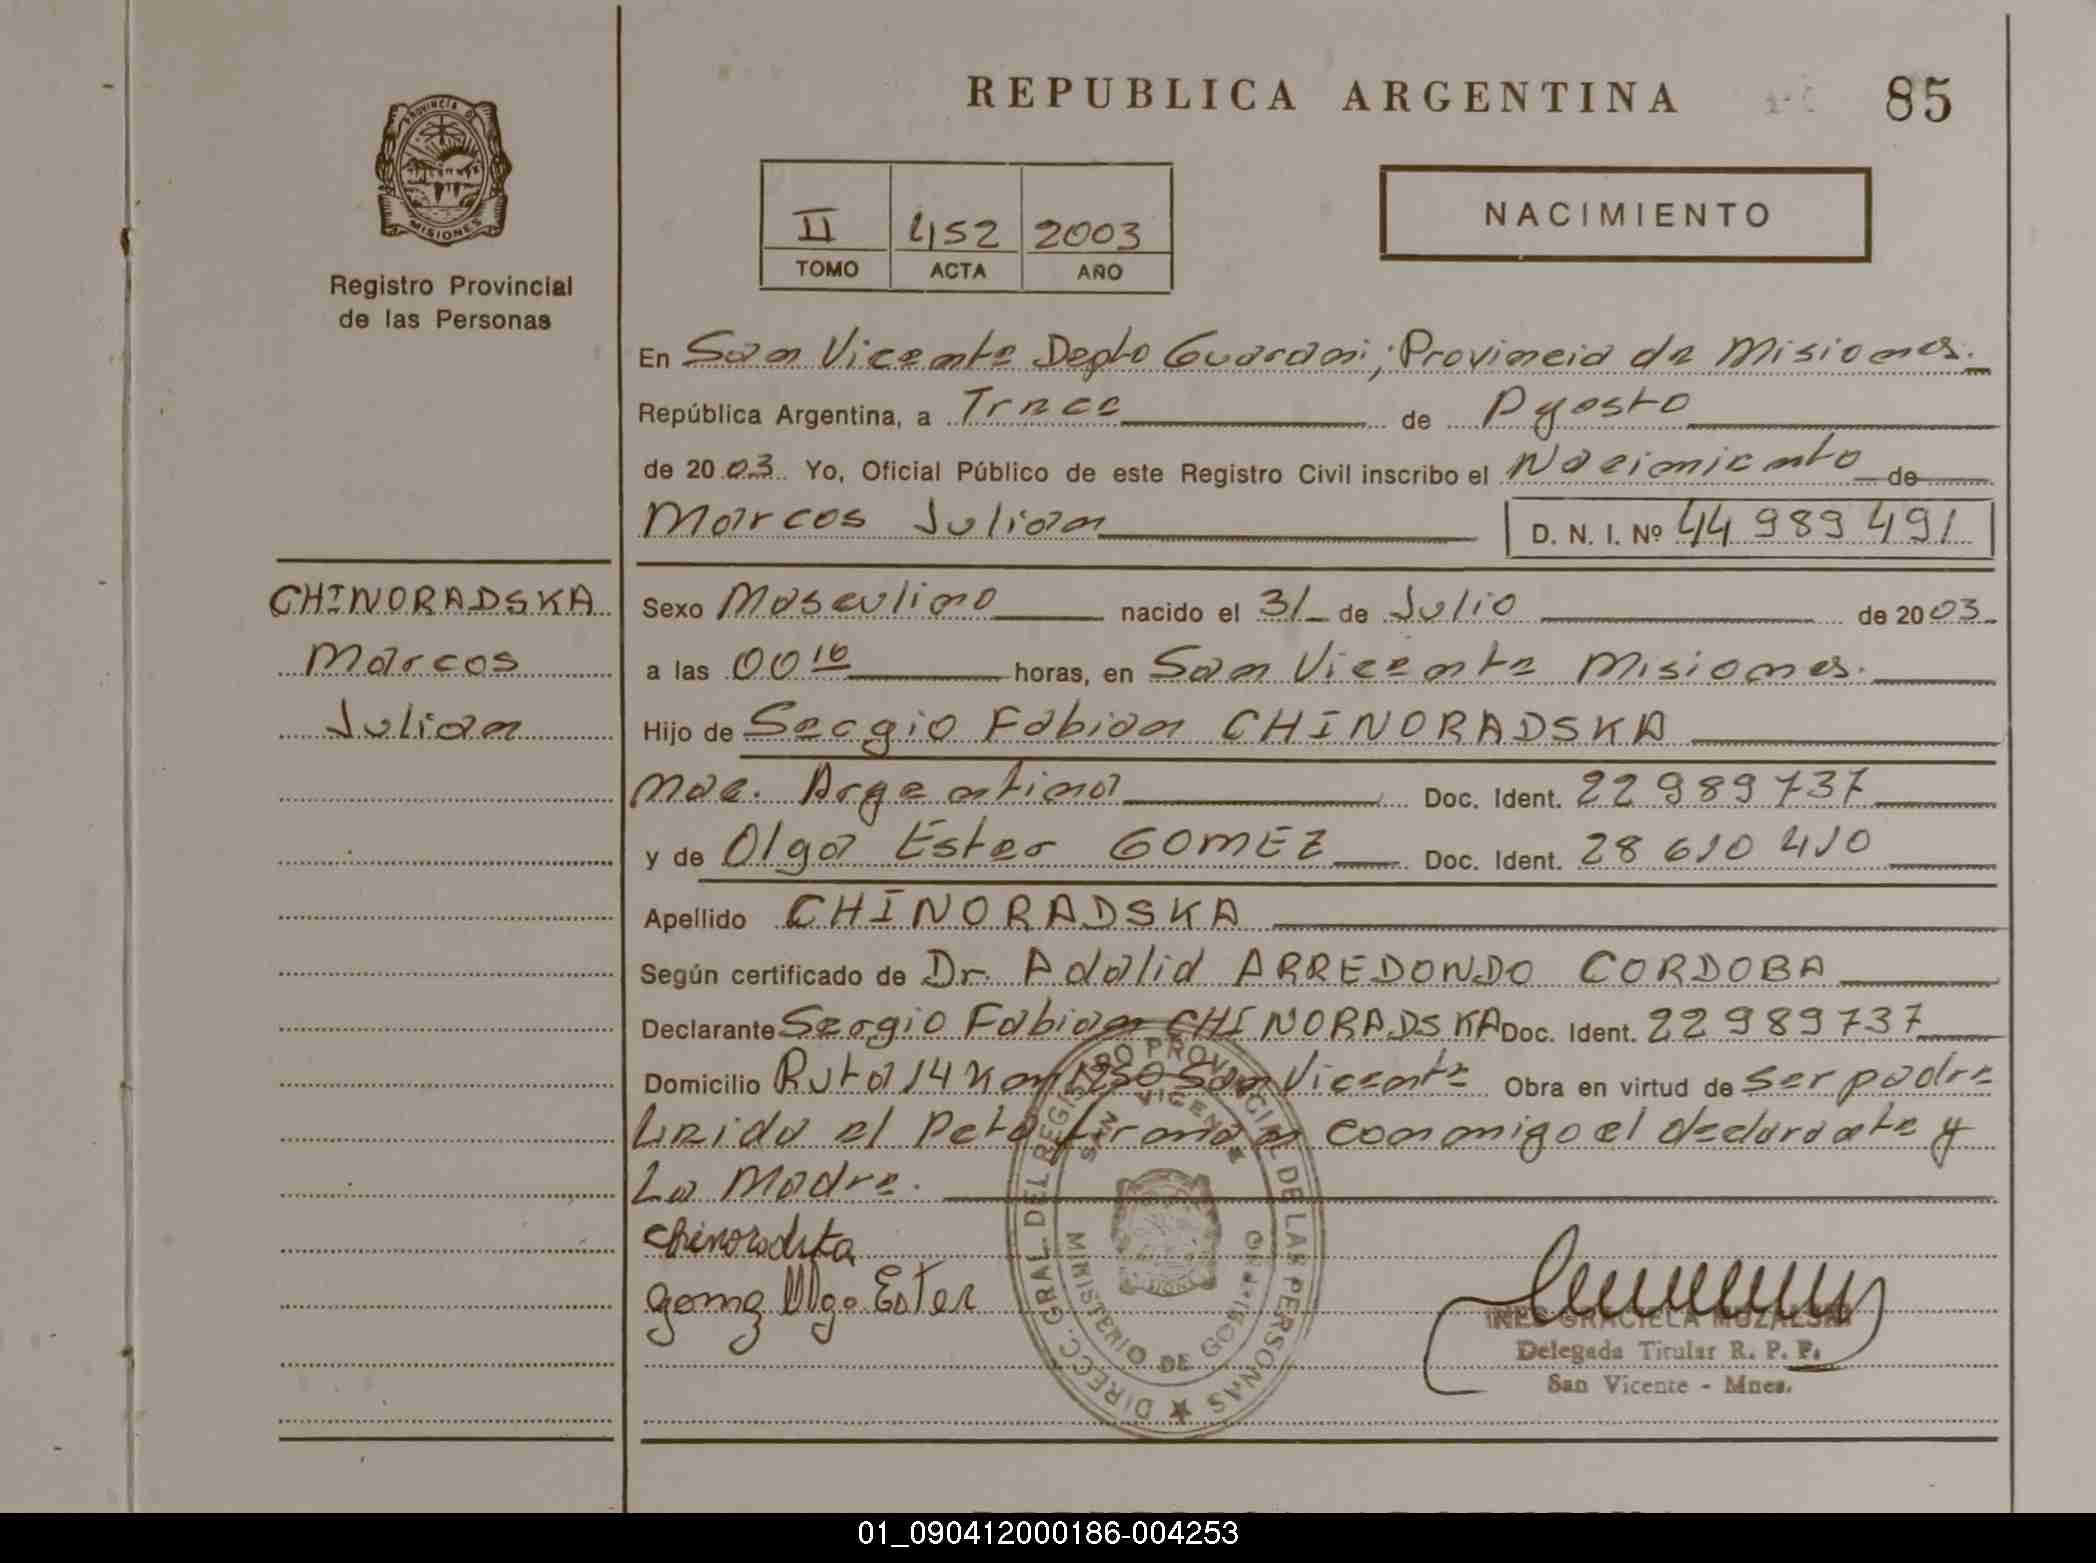 REPUBLICA ARGENTINA
85
PROVINCIA DE
MISIONES
Registro Provincial
de las Personas
II 452 2003
TOMO ACTA AÑO
NACIMIENTO
En San Vicente Depto Guarani; Provincia de Misiones.
República Argentina, a Trece de Agosto
de 2003 Yo, Oficial Público de este Registro Civil inscribo el Nacimiento de
Marcos Julian D. N. I. Nº 44 989 491
CHINORADSKA
Marcos
Julian
Sexo Masculino nacido el 31 de Julio de 2003
a las 00 10 horas, en San Vicente Misiones.
Hijo de Sergio Fabian CHINORADSKA
nac. Argentina Doc. Ident. 22 989 737
y de Olga Ester GOMEZ Doc. Ident. 28 610 410
Apellido CHINORADSKA
Según certificado de Dr. Adalid ARREDONDO CORDOBA
Declarante Sergio Fabian CHINORADSKA Doc. Ident. 22 989 737
Domicilio Ruta 14 Km 1250 San Vicente Obra en virtud de ser padre
Leida el Acta firman conmigo el declarante y
La Madre.
Chinoradska
Gomez Olga Ester
DIRECC. GRAL. DEL REGISTRO PROVINCIAL DE LAS PERSONAS
SAN VICENTE
MINISTERIO DE GOBIERNO
INES GRACIELA
Delegada Titular R. P. P.
San Vicente - Mnes.
01_090412000186-004253